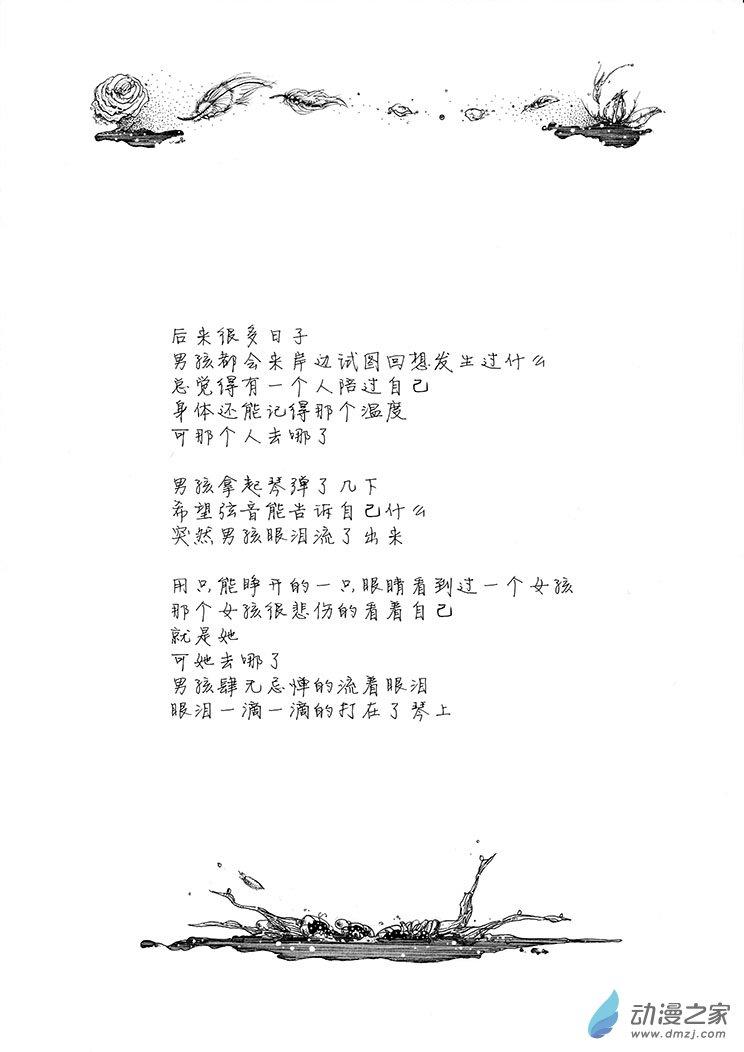 后来很多日子
男孩都会来岸边试图回想发生过什么
总觉得有一个人陪过自己
身体还能记得那个温度
可那个人去哪了
男孩拿起琴弹了几下
希望弦音能告诉自己什么
突然男孩眼泪流了出来
用只能睁开的一只眼睛看到过一个女孩
那个女孩很悲伤的看着自己
就是她
可她去哪了
男孩肆无忌惮的流着眼泪
眼泪一滴一滴的打在了琴上
动漫之家
www.dmzj.com